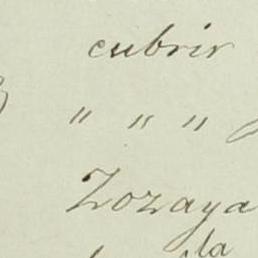 cubrir
" " "
Zozaya
la